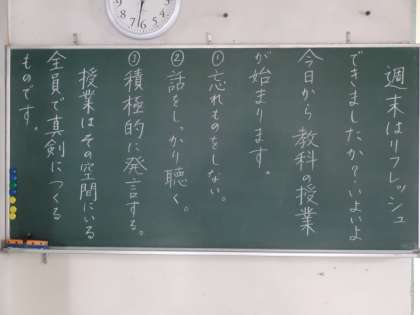 週末はリフレッシュ
できましたか？いよいよ
今日から教科の授業
が始まります。
①忘れものをしない。
②話をしっかり聴く。
③積極的に発言する。
授業はその空間にいる
全員で真剣につくる
ものです。